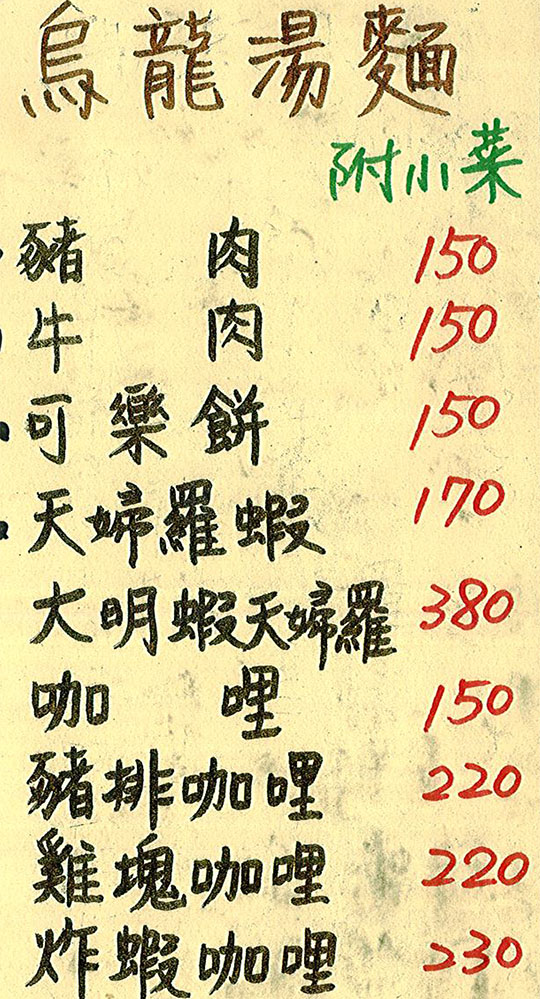 烏龍湯麵
附小菜
豬肉 150
牛肉 150
可樂餅 150
天婦羅蝦 170
大明蝦天婦羅 380
咖哩 150
豬排咖哩 220
雞塊咖哩 220
炸蝦咖哩 230